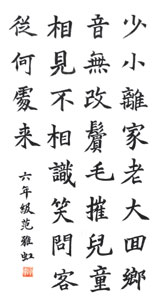 少小離家老大回鄉
音無改鬢毛摧兒童
相見不相識笑問客
從何處来
六年級范雅虹